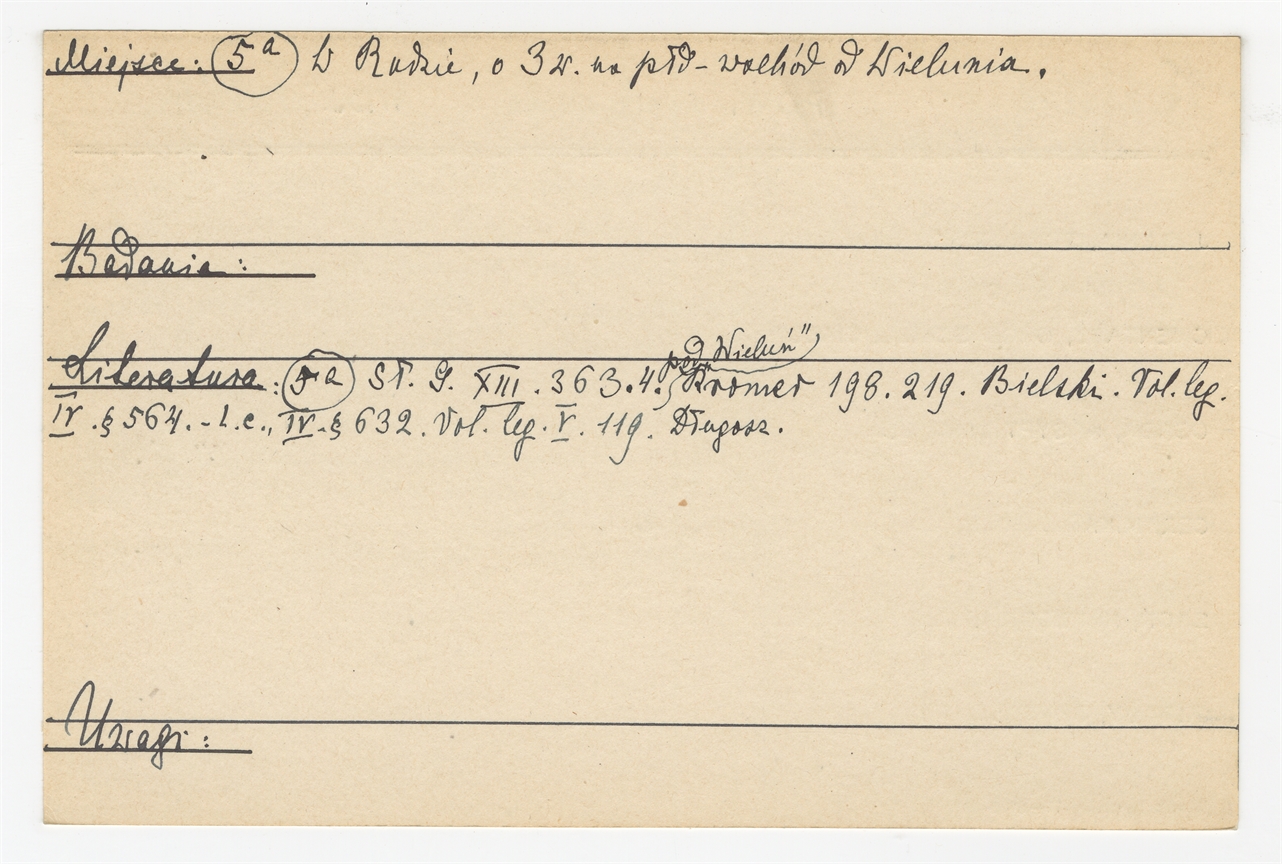 Miejsce: 5a W Rudzie, o 3 w. na płd-wschód od Wielunia.
Badania:
pod "Wieluń"
Literatura: 5a Sł. G. XIII. 363.4.; Kromer 198. 219. Bielski. Vol. leg.
IV. § 564. - l.c., IV. § 632. Vol. leg. V. 119. Długosz.
Uwagi: